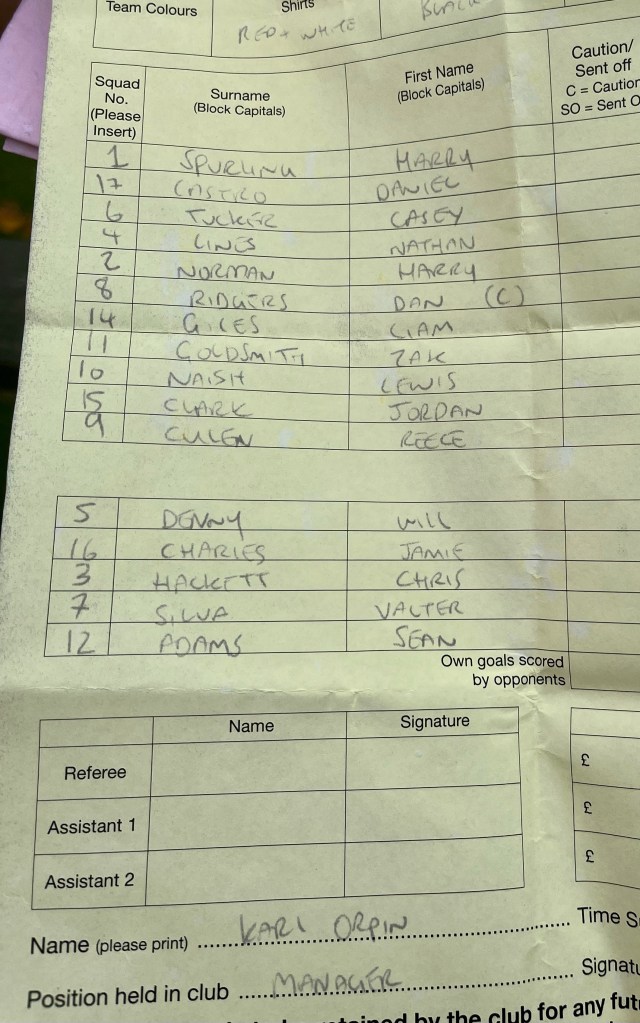 Team Colours
Shirts
RED + WHITE
BLACK
Squad No. (Please Insert)
Surname (Block Capitals)
First Name (Block Capitals)
Caution/
Sent off
C = Caution
SO = Sent O
1 SPURLING HARRY
17 CASTRO DANIEL
6 TUCKER CASEY
4 LINES NATHAN
2 NORMAN HARRY
8 RIDGERS DAN (C)
14 GILES LIAM
11 GOLDSMITH ZAK
10 NAISH LEWIS
15 CLARK JORDAN
9 CULLEN REECE
5 DENNY WILL
16 CHARLES JAMIE
3 HACKETT CHRIS
7 SILVA VALTER
12 ADAMS SEAN
Own goals scored
by opponents
Name Signature
Referee £
Assistant 1 £
Assistant 2 £
Name (please print) KARL ORPIN Time S
Position held in club MANAGER Signatu
by the club for any fut